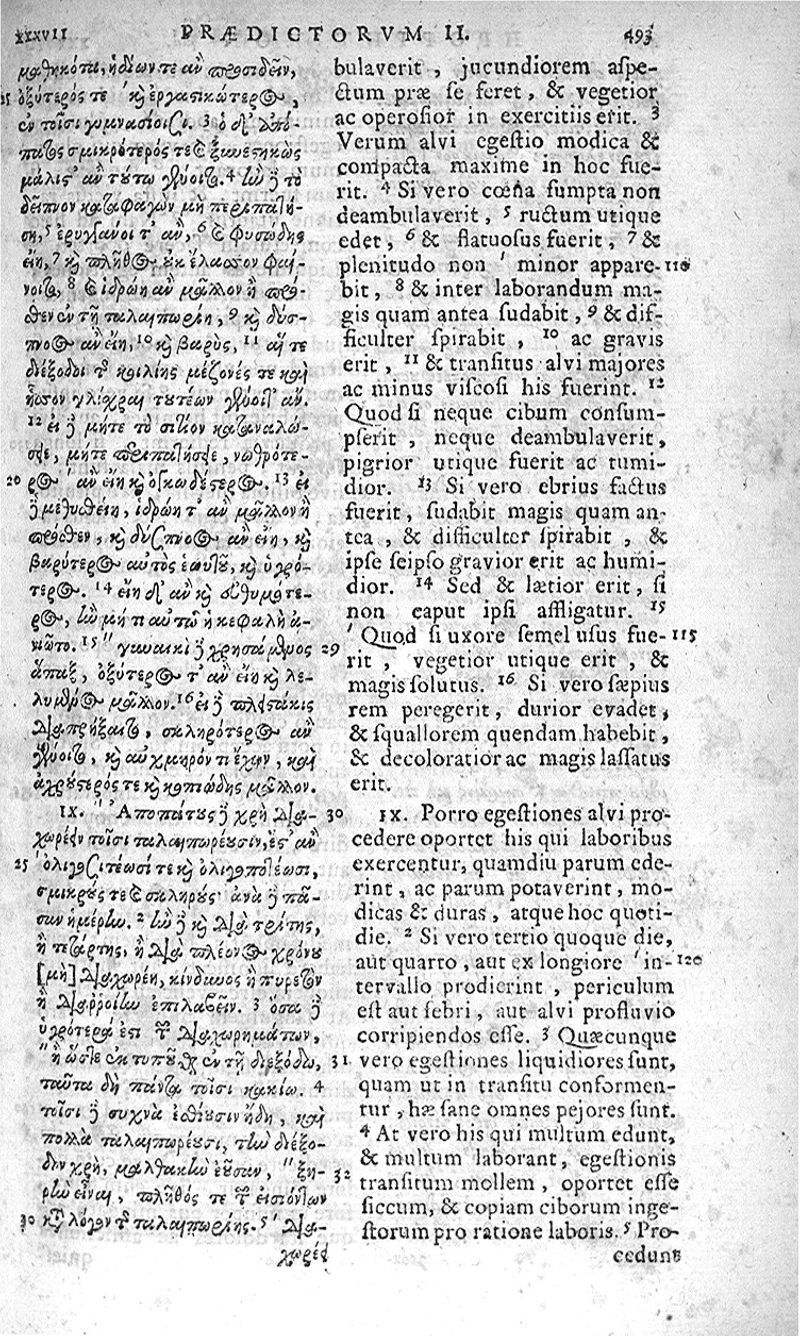 XXXVII PRÆDICTORVM II. 493
μαθηκότα, ἡδίων τε ἂν προσιδεῖν,
15 ὀξύτερός τε κ̀ ἐργασικώτερος,
ἐν τοῖσι γυμνασίοισι. 3 ὁ δ' ἀπό-
πατος σμικρότερός τε κ̀ ξυνεστηκὼς
μάλιστ' ἂν τούτῳ γένοιτο. 4 ἢν ἢ τὸ
δεῖπνον καταφαγὼν μὴ περιπατή-
σῃ, 5 ἐρυγγάνοι τ' ἂν, 6 κ̀ φυσώδης
εἴη, 7 κ̀ πλῆθος οὐκ ἔλασσον φαί-
νοιτο, 8 κ̀ ἱδρῴη ἂν μᾶλλον ἢ πρό-
σθεν ἐν τῇ ταλαιπωρίῃ, 9 κ̀ δύσ-
πνοος ἂν εἴη, 10 κ̀ βαρὺς, 11 αἵ τε
διέξοδοι τῆς κοιλίης μέζονές τε καὶ
ἧσσον γλίσχραι τουτέων γένοιντ' ἄν.
12 εἰ δὲ μήτε τὸ σιτίον καταναλώ-
σειε, μήτε περιπατήσειε, νωθρότε-
20 ρος ' ἂν εἴη κ̀ ὀγκωδέστερος. 13 εἰ
δὲ μεθυσθείη, ἱδρῴη τ' ἂν μᾶλλον ἢ
πρόσθεν, κ̀ δύσπνοος ἂν εἴη, κ̀
βαρύτερος αὐτὸς ἑωυτοῦ, κ̀ ὑγρό-
τερος. 14 εἴη δ' ἂν κ̀ εὐθυμότε-
ρος, ἢν μή τι αὐτῷ ἡ κεφαλὴ ἀ-
νιῷτο. 15 " γυναικὶ δὲ χρησάμενος 29
ἅπαξ, ὀξύτερος τ' ἂν εἴη κ̀ λε-
λυμένος μᾶλλον. 16 εἰ δὲ πλειστάκις
διαπρήξαιτο, σκληρότερος ἂν
γένοιτο, κ̀ αὐχμηρόν τι ἔχων, καὶ
ἀχρούστερός τε κ̀ κοπιώδης μᾶλλον.
IX. " Ἀποπάτους δὲ χρὴ δια- 30
χωρέειν τοῖσι ταλαιπωρέουσιν, ἔστ' ἂν
25 ' ὀλιγοσιτέωσί τε κ̀ ὀλιγοποτέωσι,
σμικρούς τε κ̀ σκληρούς· ἀνὰ δὲ πᾶ-
σαν ἡμέρην. 2 ἢν δὲ κ̀ διὰ τρίτης,
ἢ τετάρτης, ἢ διὰ πλέονος χρόνου
[μὴ] διαχωρέῃ, κίνδυνος ἢ πυρετὸν
ἢ διάρροιαν ἐπιλαβεῖν. 3 ὅσα δὲ
ὑγρότερά ἐστι τῶν διαχωρημάτων,
" ἢ ὥστε ἐκτυποῦσθαι ἐν τῇ διεξόδῳ, 31
ταῦτα δὴ πάντα τοῖσι κακίω. 4
τοῖσι δὲ συχνὰ ἐσθίουσιν ἤδη, καὶ
πολλὰ ταλαιπωρέουσι, τὴν διέξο-
δον χρὴ, μαλθακὴν ἐοῦσαν, " ξη- 32
ρὴν εἶναι, πλῆθός τε τῶν εἰσιόντων
30 κατὰ λόγον τῆς ταλαιπωρίης. 5 ' δια-
χωρέει
bulaverit, jucundiorem aspe-
ctum præ se feret, & vegetior
ac operosior in exercitiis erit. 3
Verum alvi egestio modica &
compacta maxime in hoc fue-
rit. 4 Si vero cœna sumpta non
deambulaverit, 5 ructum utique
edet, 6 & flatuosus fuerit, 7 &
plenitudo non ' minor appare- 110
bit, 8 & inter laborandum ma-
gis quam antea sudabit, 9 & dif-
ficulter spirabit, 10 ac gravis
erit, 11 & transitus alvi majores
ac minus viscosi his fuerint. 12
Quod si neque cibum consum-
pserit, neque deambulaverit,
pigrior utique fuerit ac tumi-
dior. 13 Si vero ebrius factus
fuerit, sudabit magis quam an-
tea, & difficulter spirabit, &
ipse seipso gravior erit ac humi-
dior. 14 Sed & lætior erit, si
non caput ipsi affligatur. 15
' Quod si uxore semel usus fue- 115
rit, vegetior utique erit, &
magis solutus. 16 Si vero sæpius
rem peregerit, durior evadet,
& squallorem quendam habebit,
& decoloratior ac magis lassatus
erit.
IX. Porro egestiones alvi pro-
cedere oportet his qui laboribus
exercentur, quamdiu parum ede-
rint, ac parum potaverint, mo-
dicas & duras, atque hoc quoti-
die. 2 Si vero tertio quoque die,
aut quarto, aut ex longiore ' in- 120
tervallo prodierint, periculum
est aut febri, aut alvi profluvio
corripiendos esse. 3 Quæcunque
vero egestiones liquidiores sunt,
quam ut in transitu conformen-
tur, hæ sane omnes pejores sunt.
4 At vero his qui multum edunt,
& multum laborant, egestionis
transitum mollem, oportet esse
siccum, & copiam ciborum inge-
storum pro ratione laboris. 5 Pro-
cedunt